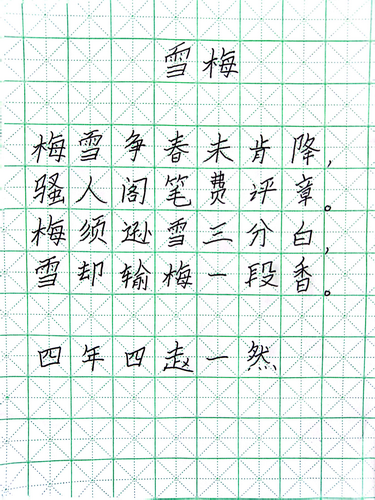 雪梅
梅雪争春未肯降，
骚人阁笔费评章。
梅须逊雪三分白，
雪却输梅一段香。
四年四赵一然